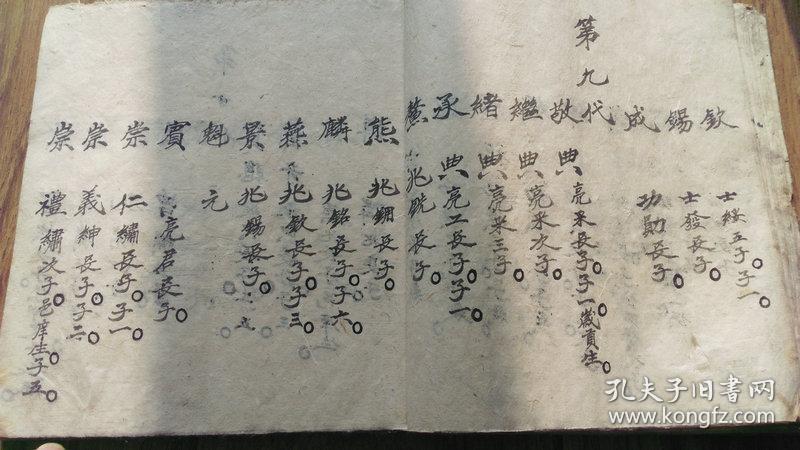 欽 士綏五子。子一。
錫 士發長子。
成 功勛長子。
第九代
敬典 亮采長子。子一。歲貢生。
繼典 亮采次子。
緒典 亮采三子。
承典 亮工長子。子一。
薰 兆 長子。
熊 兆錮長子。
麟 兆銘長子。子六。
燕 兆欽長子。子三。
景 兆錫長子。子
魁元
賓 亮君長子。
崇仁 繡長子。子一。
崇義 紳長子。子二。
崇禮 繡次子。邑庠生。子五。
孔夫子旧书网
www.kongfz.com